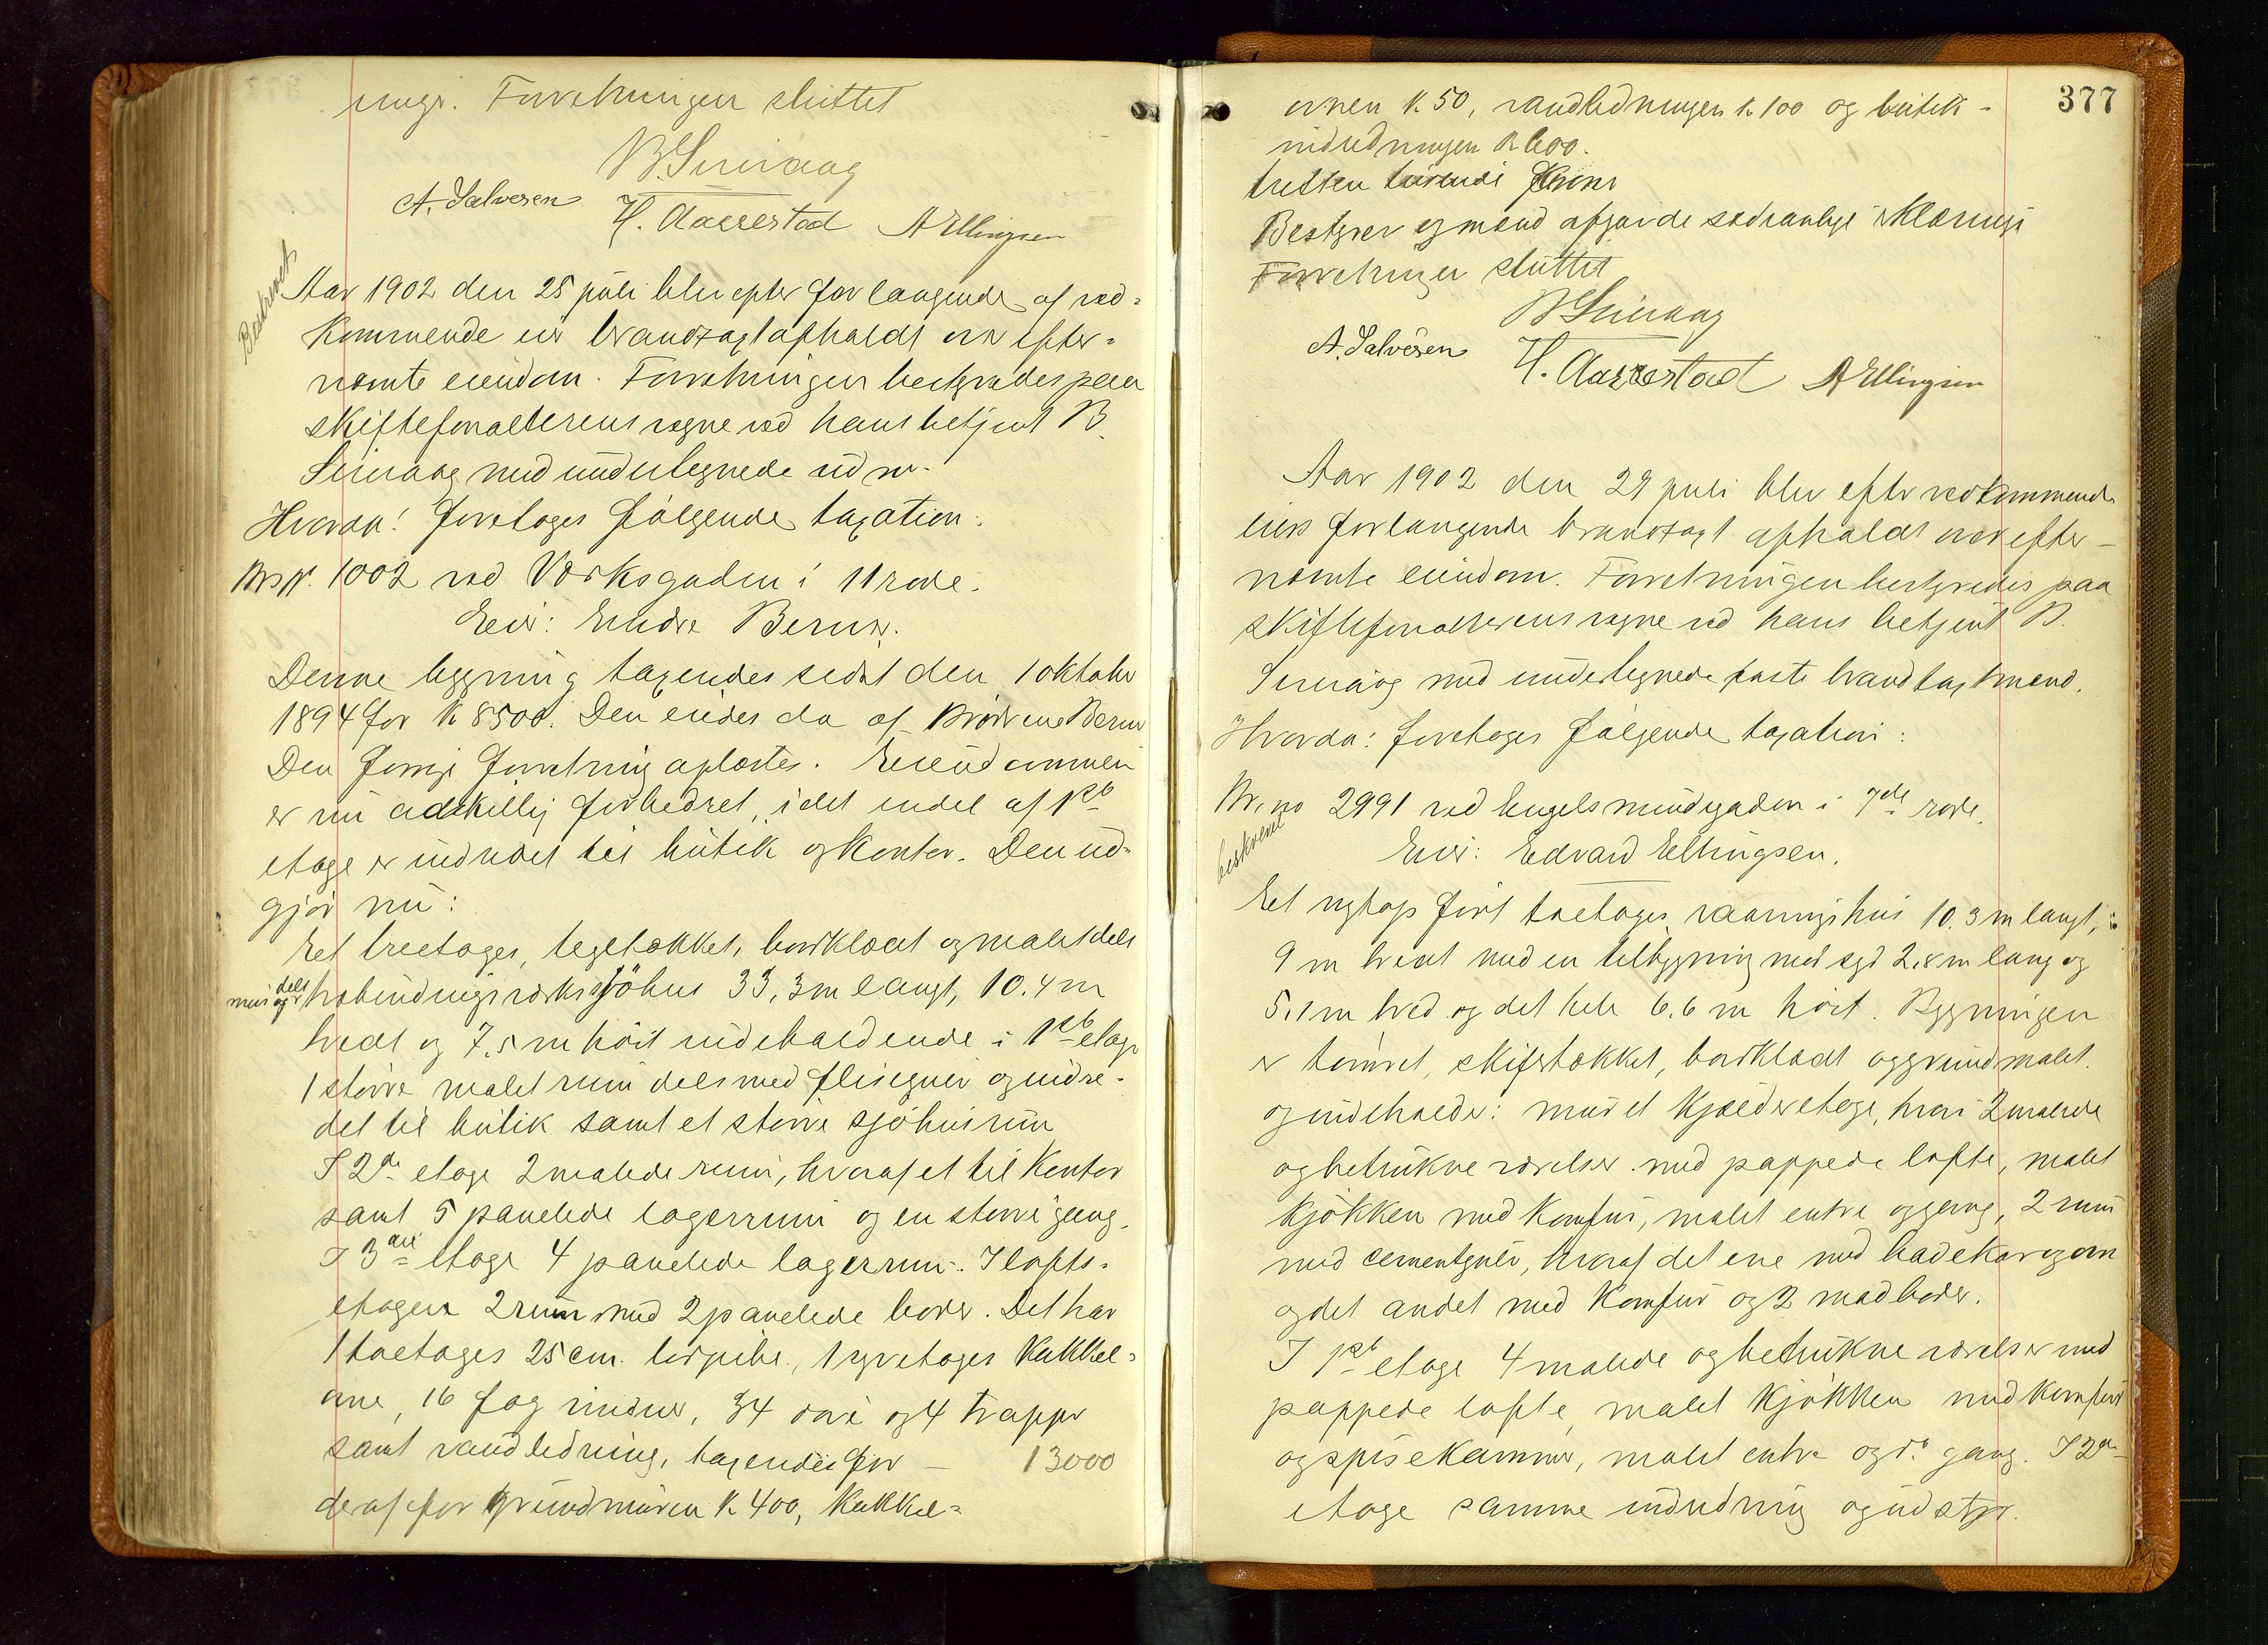 ings. Forretningen sluttet
B. Surraag
A. Salvesen H. Aarrestad A Ellingsen
Beskrevet
Aar 1902 den 25 juli blev efter forlangende af ved-
kommende eier brandtaxt afholdt over efter-
nævnte eiendom. Forretningen bestyredes paa
skifteforvalterens vegne ved hans betjent B.
med undertegnede
Hvorda! foretoges følgende taxation:
Br. N. 1002 ved Værksgaden i 11 rode.
Eier: Endre Berner.
Denne bygning taxeredes sidst den 1 oktober
1894 for K 8500. Den eiedes da af Brødrene Berner
Den forrige forretning oplæstes. Eiendommen
er nu adskillig forbedret, idet endel af 1ste
etage er indredet til butik og kontor. Den ud-
gjør nu:
Et treetages, teglstækket, bordklædt og malet dels
mur og dels træbindingsværks sjøhus 33,3 m langt, 10.4 m
bredt og 7,5 m høit indeholdende i 1ste etage
1 større malet rum dels med flisegulv og indre-
det til butik samt et større sjøhusrum
I 2de etage 2 malede rum, hvoraf et til kontor
samt 5 panelede lagerrum og en større gang.
I 3die etage 4 panelede lagerrum. I lofts-
etagen 2 rum med 2 panelede boder. Det har
1 toetages 25 cm. 1 kakkel-
ovne, 16 fag vinduer, 34 døre og 4 trapper
samt vandledning, taxeredes for — 13000
deraf for grundmuren K. 400, kakkel-
377
ovnen K. 50, vandledningen K. 100 og butik-
indredningen K 600.
tretten tusinde Kroner
Bestyrer og mænd afgav de sædvanlige erklæringer
Forretningen sluttet
B Surraag
A. Salvesen H. Aarrestad A Ellingsen
Aar 1902 den 29 juli blev efter vedkommende
eiers forlangende brandtaxt afholdt over efter-
nævnte eiendom. Forretningen bestyredes paa
skifteforvalterens vegne ved hans betjent B.
med undertegnede faste brandtaxtmænd.
Hvorda: foretoges følgende taxation:
Br. no 2991 ved Engelsmindegaden i 7de rode.
beskrevet
Eier: Edvard Ellingsen.
Et nyt opført toetages vaaningshus 10.3 m langt,
9 m bredt med en tilbygning mod syd 2,8 m lang og
5,1 m bred og det hele 6.6 m høit. Bygningen
er tømret, skifertækket, bordklædt og grundmalet.
og indeholder: muret kjælderetage, hvori 2 malede
og betrukne værelser med pappede lofte, malet
kjøkken med komfur, malet entre og gang, 2 rum
med cementgulv, hvoraf det ene med badekar og ovn
og det andet med komfur og 2 madboder.
I 1ste etage 4 malede og betrukne værelser med
pappede lofte, malet kjøkken med komfur
og spisekammer, malet entre og do gang. I 2de
etage samme indredning og udstyr.